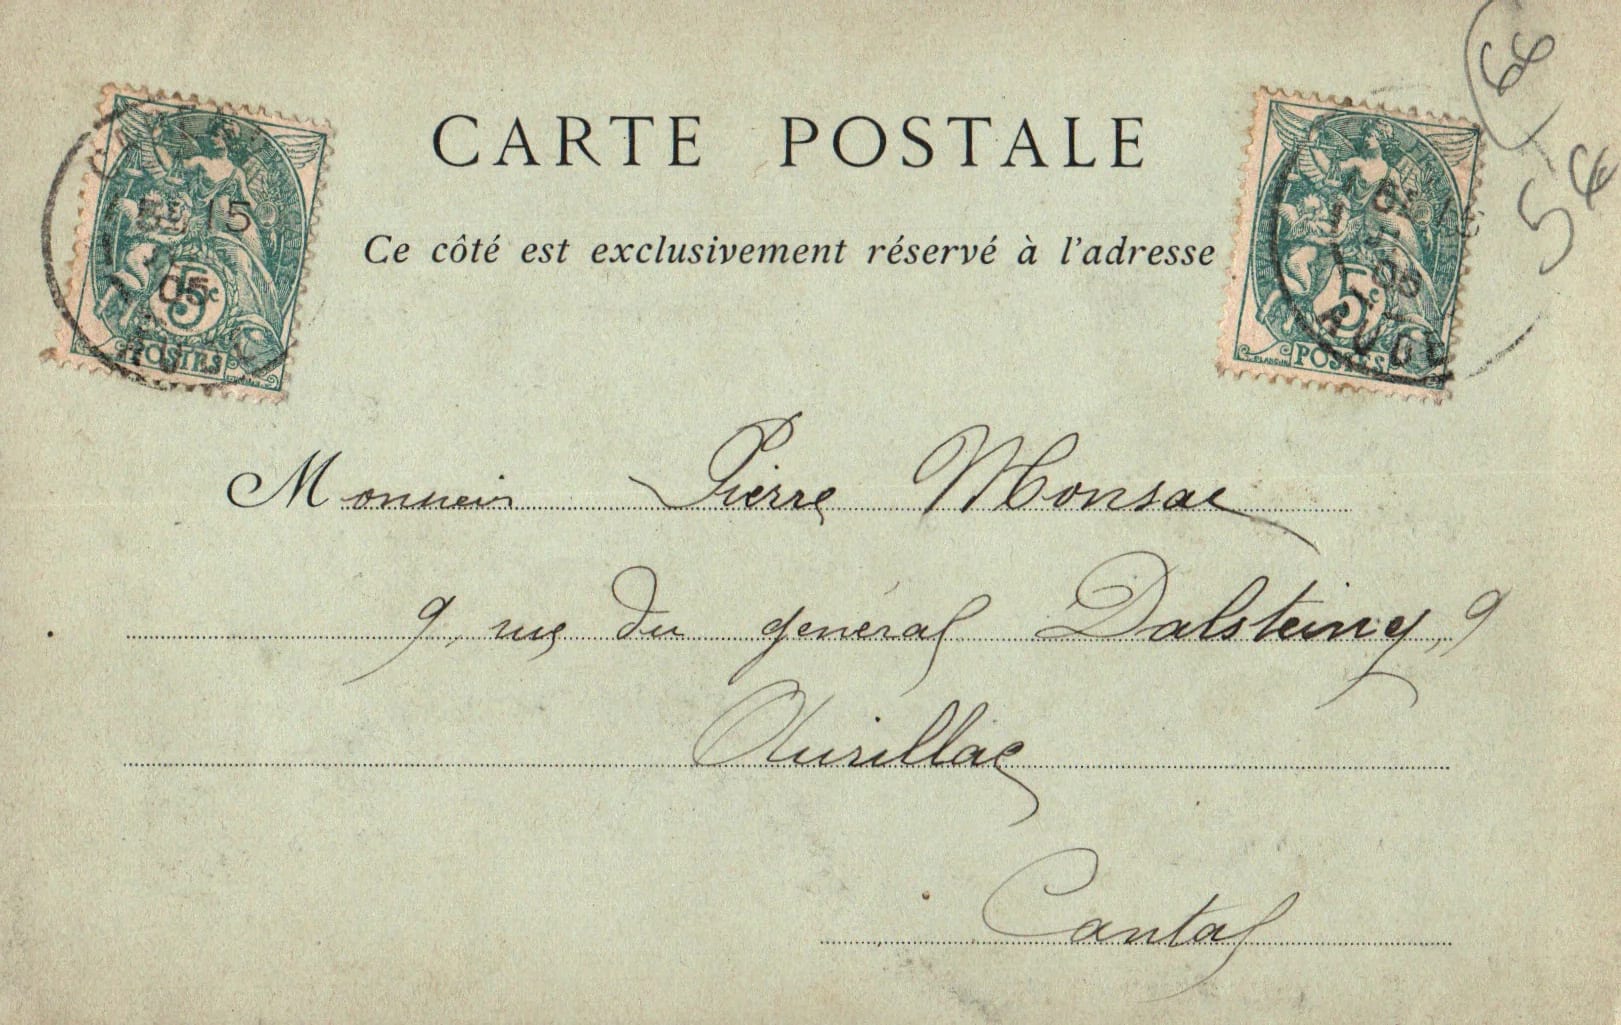 CARTE POSTALE
Ce côté est exclusivement réservé à l'adresse
15
05
5c
POSTES
5c
POSTES
66
5€
Monsieur Pierre Monsac
9, rue du général Dalsteiny, 9
Aurillac
Cantal